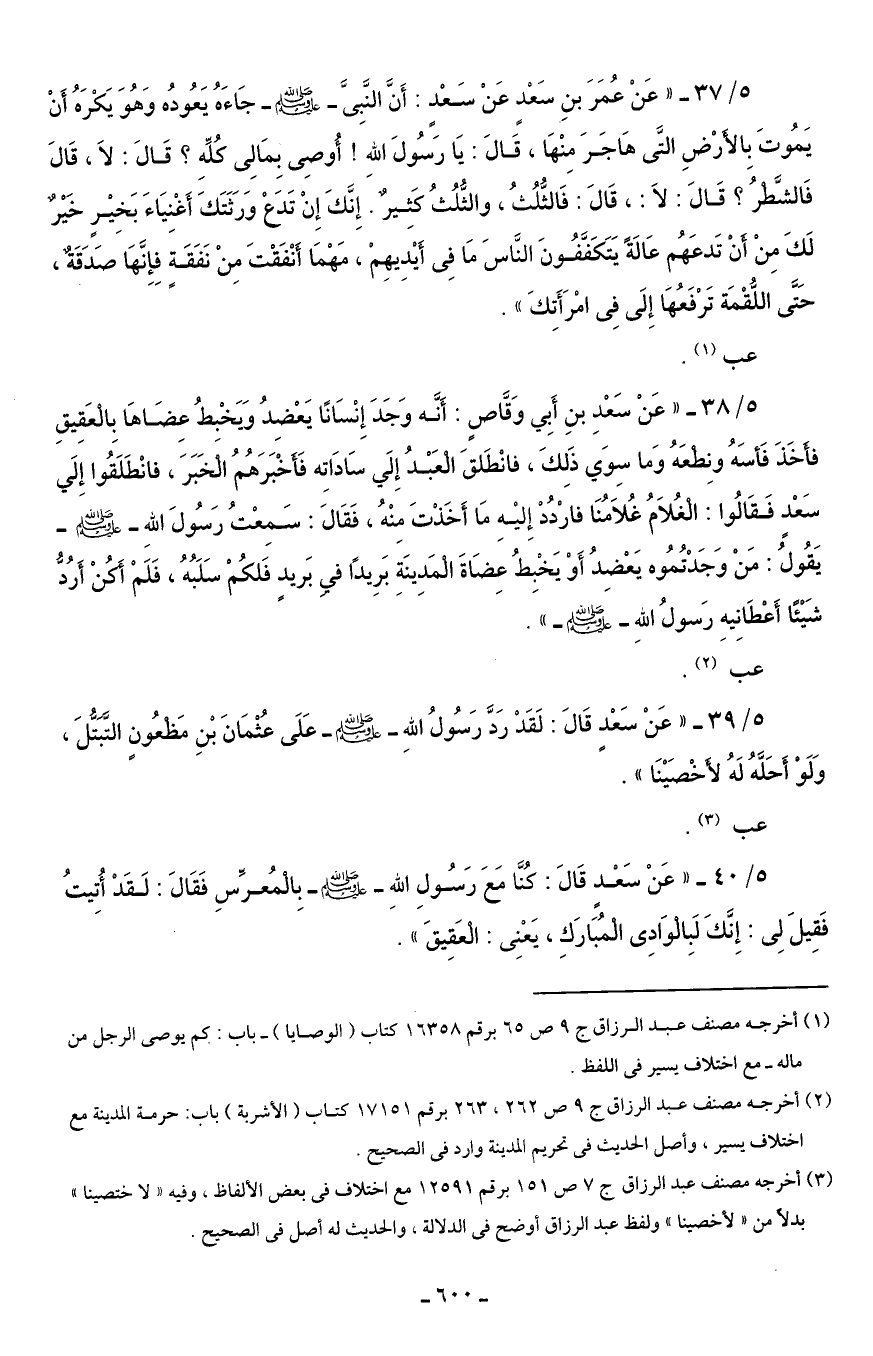 ٥/ ٣٧ ـ « عَنْ عُمَرَ بنِ سَعْدٍ عَنْ سَـعْدٍ : أَنَّ النَّبِىَّ ـ ﷺ ـ جَاءَهُ يَعُودُه وَهُوَ يَكْرَهُ أَنْ
يَمُوتَ بِالأَرْضِ التَّى هَاجَـرَ مِنْهَا ، قَـالَ : يَا رَسُولَ اللهِ ! أُوصِى بِمَالِى كُلِّهِ ؟ قَـالَ : لاَ ، قَالَ
فَالشطْرُ ؟ قَـالَ : لاَ : ، قَالَ : فَالثُّلُثُ ، والثُّلُثُ كَثِيرٌ . إِنَّكَ إِنْ تَدَعْ وَرَثَتَكَ أَغْنِيَاءَ بَخِيْرٍ خَيْرٌ
لَكَ مِنْ أَنْ تَدعَهُم عَالَةً يَتَكَفَّفُـونَ النَّاسَ مَا فِى أَيْدِيهِمْ ، مَهْمَا أَنْفَقْتَ مِنْ نَفَقَـةٍ فَإِنَّهَا صَدَقَةٌ ،
حَتَّى اللُّقْمَة تَرْفَعُهَا إِلَى فِى امْرَأَتِكَ » .
عب (١) .
٥/ ٣٨ ـ « عَنْ سَعْدِ بنِ أَبي وَقَّاصٍ : أَنَّـه وَجَدَ إِنْسَانًا يَعْضِدُ وَيَخْبِطُ عِضَـاهَا بِالْعَقِيقِ
فأَخَذَ فَأسَهُ ونطْعَهُ وَما سوَي ذَلِكَ ، فانْطَلَقَ الْعَبْـدُ إلَي سَادَاته فَأَخْبَرَهُمُ الْخَبَرَ ، فانْطَلَقُوا إِلَي
سَعْدٍ فَـقَالُوا : الْغُلاَمُ غُلاَمُنَا فارْدُدْ إليْـهِ مَا أَخَذْتَ مِنْهُ ، فَقَالَ : سَـمِعْتُ رَسُولَ اللهِ ـ ﷺ ـ
يَقُولُ : مَنْ وَجَدْتُمُوه يَعْضِدُ أَوْ يَخْبِطُ عِضَاةَ الْمَدينَةِ بَرِيداً في بَرِيدٍ فَلَكُمْ سَلَبُهُ ، فَلَمْ أَكُنْ أَرُدُّ
شَيْئًا أَعْطَانِيهِ رَسولُ اللهِ ـ ﷺ ـ » .
عب (٢) .
٥/ ٣٩ ـ « عَنْ سَعْدٍ قَالَ : لَقَدْ رَدَّ رَسُولُ اللهِ ـ ﷺ ـ عَلَى عثْمَانَ بْنِ مَظْعُونٍ التَّبَتُّلَ ،
وَلَوْ أَحَلَّهُ لَهُ لأَخْصَيْنَا » .
عب (٣) .
٥/ ٤٠ ـ « عَنْ سَعْـدٍ قَالَ : كُنَّا مَعَ رَسُـولِ اللهِ ـ ﷺ ـ بِالْمُعـرِّسِ فَقَالَ : لَـقَدْ أُتِيتُ
فَقِيلَ لِى : إِنَّكَ لَبِالْوَادِى الْمُبَارَكِ ، يَعْنِى : الْعَقِيقَ » .
(١) أخرجـه مصنف عبـد الـرزاق ج ٩ ص ٦٥ برقم ١٦٣٥٨ كتاب ( الوصـايا ) ـ باب : كم يوصى الرجل من
ماله ـ مع اختلاف يسير فى اللفظ .
(٢) أخرجـه مصنف عبـد الرزاق ج ٩ ص ٢٦٢ ، ٢٦٣ برقم ١٧١٥١ كتـاب ( الأشربة ) باب: حرمـة المدينة مع
اختلاف يسير ، وأصل الحديث فى تحريم المدينة وارد فى الصحيح .
(٣) أخرجه مصنف عبد الرزاق ج ٧ ص ١٥١ برقم ١٢٥٩١ مع اختلاف فى بعض الألفاظ ، وفيه « لا ختصينا »
بدلاً من « لأخصينا » ولفظ عبد الرزاق أوضح فى الدلالة ، والحديث له أصل فى الصحيح .
ـ ٦٠٠ ـ